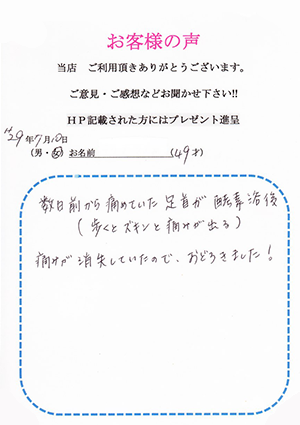 お客様の声
当店　ご利用頂きありがとうございます。
ご意見・ご感想などお聞かせ下さい!!
HP記載された方にはプレゼント進呈
H29年7月10日
(男・女) お名前 (49才)
数日前から痛めていた足首が酵素浴後
(歩くとズキンと痛みが出る)
痛みが消失していたので、おどろきました!